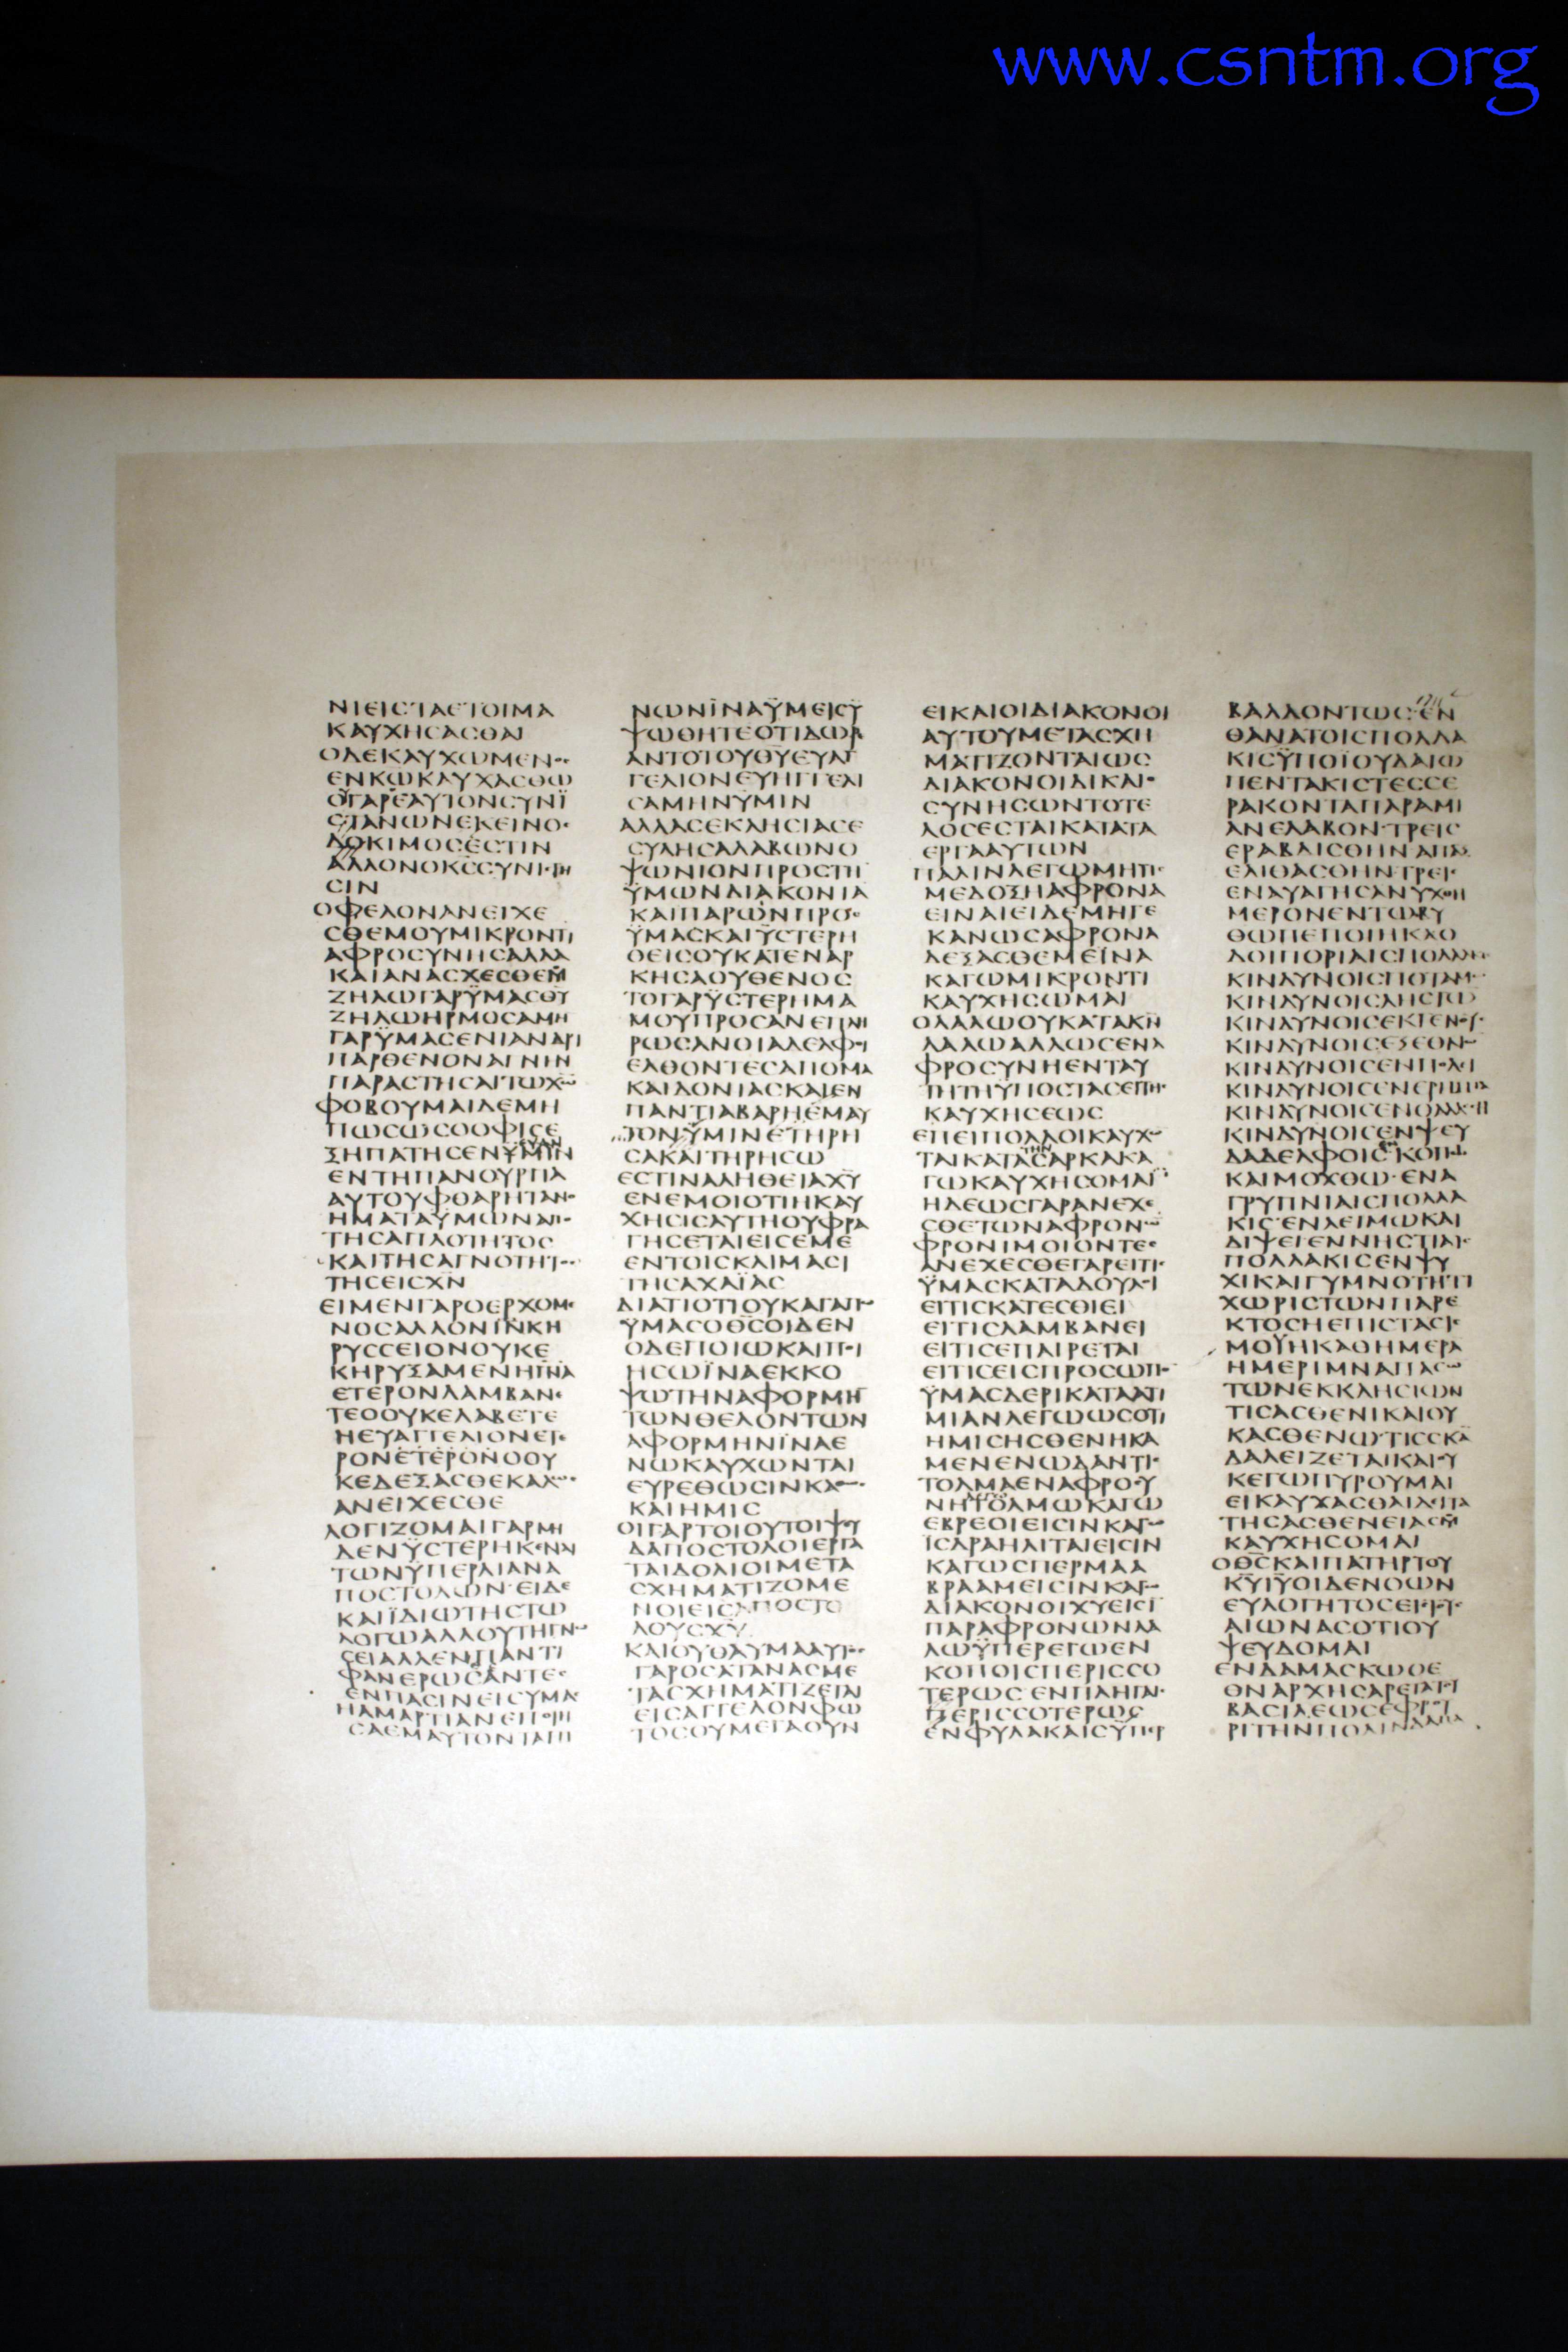 www.csntm.org
ΝΙΕΙϹΤΑΕΤΟΙΜΑ
ΚΑΥΧΗϹΑϹΘΑΙ
ΟΔΕΚΑΥΧΩΜΕΝΟϹ
ΕΝΚΩΚΑΥΧΑϹΘΩ
ΟΥΓΑΡΕΑΥΤΟΝϹΥΝΪ
ϹΤΑΝΩΝΕΚΕΙΝΟϹ
ΔΟΚΙΜΟϹΕϹΤΙΝ
ΑΛΛΟΝΟΚϹϹΥΝΙϹΤΗ
ϹΙΝ
ΟΦΕΛΟΝΑΝΕΙΧΕ
ϹΘΕΜΟΥΜΙΚΡΟΝΤΙ
ΑΦΡΟϹΥΝΗϹΑΛΛΑ
ΚΑΙΑΝΑϹΧΕϹΘΕΜΟΥ
ΖΗΛΩΓΑΡΫΜΑϹΘΥ
ΖΗΛΩΗΡΜΟϹΑΜΗ
ΓΑΡΫΜΑϹΕΝΙΑΝΔΡΙ
ΠΑΡΘΕΝΟΝΑΓΝΗΝ
ΠΑΡΑϹΤΗϹΑΙΤΩΧΩ
ΦΟΒΟΥΜΑΙΔΕΜΗ
ΠΩϹΩϹΟΟΦΙϹΕ
ΕΥΑΝ
ΞΗΠΑΤΗϹΕΝΫΜΙΝ
ΕΝΤΗΠΑΝΟΥΡΓΙΑ
ΑΥΤΟΥΦΘΑΡΗΤΑΝΟ
ΗΜΑΤΑΫΜΩΝΑΠΟ
ΤΗϹΑΠΛΟΤΗΤΟϹ
ΚΑΙΤΗϹΑΓΝΟΤΗΤΟϹ
ΤΗϹΕΙϹΧΝ
ΕΙΜΕΝΓΑΡΟΕΡΧΟΜΕ
ΝΟϹΑΛΛΟΝΙΝΚΗ
ΡΥϹϹΕΙΟΝΟΥΚΕ
ΚΗΡΥΞΑΜΕΝΗΠΝΑ
ΕΤΕΡΟΝΛΑΜΒΑΝΕ
ΤΕΟΟΥΚΕΛΑΒΕΤΕ
ΗΕΥΑΓΓΕΛΙΟΝΕΤΕ
ΡΟΝΕΤΕΡΟΝΟΟΥ
ΚΕΔΕΞΑϹΘΕΚΑΛΩϹ
ΑΝΕΙΧΕϹΘΕ
ΛΟΓΙΖΟΜΑΙΓΑΡΜΗ
ΔΕΝΫϹΤΕΡΗΚΕΝΑΙ
ΤΩΝΫΠΕΡΛΙΑΝΑ
ΠΟϹΤΟΛΩΝΕΙΔΕ
ΚΑΙΪΔΙΩΤΗϹΤΩ
ΛΟΓΩΑΛΛΟΥΤΗΓΝΩ
ϹΕΙΑΛΛΕΝΠΑΝΤΙ
ΦΑΝΕΡΩϹΑΝΤΕϹ
ΕΝΠΑϹΙΝΕΙϹΥΜΑϹ
ΗΑΜΑΡΤΙΑΝΕΠΟΙΗ
ϹΑΕΜΑΥΤΟΝΤΑΠΙ
ΝΩΝΪΝΑΫΜΕΙϹΥ
ΨΩΘΗΤΕΟΤΙΔΩΡΕ
ΑΝΤΟΤΟΥΘΥΕΥΑΓ
ΓΕΛΙΟΝΕΥΗΓΓΕΛΙ
ϹΑΜΗΝΫΜΙΝ
ΑΛΛΑϹΕΚΛΗϹΙΑϹΕ
ϹΥΛΗϹΑΛΑΒΩΝΟ
ΨΩΝΙΟΝΠΡΟϹΤΗ
ΫΜΩΝΔΙΑΚΟΝΙΑ
ΚΑΙΠΑΡΩΝΠΡΟϹ
ΫΜΑϹΚΑΙΫϹΤΕΡΗ
ΘΕΙϹΟΥΚΑΤΕΝΑΡ
ΚΗϹΑΟΥΘΕΝΟϹ
ΤΟΓΑΡΫϹΤΕΡΗΜΑ
ΜΟΥΠΡΟϹΑΝΕΠΛΗ
ΡΩϹΑΝΟΙΑΔΕΛΦΟΙ
ΕΛΘΟΝΤΕϹΑΠΟΜΑ
ΚΑΙΔΟΝΙΑϹΚΑΙΕΝ
ΠΑΝΤΙΑΒΑΡΗΕΜΑΥ
ΤΟΝΫΜΙΝΕΤΗΡΗ
ϹΑΚΑΙΤΗΡΗϹΩ
ΕϹΤΙΝΑΛΗΘΕΙΑΧΥ
ΕΝΕΜΟΙΟΤΙΗΚΑΥ
ΧΗϹΙϹΑΥΤΗΟΥΦΡΑ
ΓΗϹΕΤΑΙΕΙϹΕΜΕ
ΕΝΤΟΙϹΚΛΙΜΑϹΙ
ΤΗϹΑΧΑΪΑϹ
ΔΙΑΤΙΟΤΙΟΥΚΑΓΑΠΩ
ΫΜΑϹΟΘϹΟΙΔΕΝ
ΟΔΕΠΟΙΩΚΑΙΠΟΙ
ΗϹΩΪΝΑΕΚΚΟ
ΨΩΤΗΝΑΦΟΡΜΗΝ
ΤΩΝΘΕΛΟΝΤΩΝ
ΑΦΟΡΜΗΝΪΝΑΕ
ΝΩΚΑΥΧΩΝΤΑΙ
ΕΥΡΕΘΩϹΙΝΚΑΘΩϹ
ΚΑΙΗΜΙϹ
ΟΙΓΑΡΤΟΙΟΥΤΟΙΨΕΥ
ΔΑΠΟϹΤΟΛΟΙΕΡΓΑ
ΤΑΙΔΟΛΙΟΙΜΕΤΑ
ϹΧΗΜΑΤΙΖΟΜΕ
ΝΟΙΕΙϹΑΠΟϹΤΟ
ΛΟΥϹΧΥ
ΚΑΙΟΥΘΑΥΜΑΑΥΤΟϹ
ΓΑΡΟϹΑΤΑΝΑϹΜΕ
ΤΑϹΧΗΜΑΤΙΖΕΤΑΙ
ΕΙϹΑΓΓΕΛΟΝΦΩ
ΤΟϹΟΥΜΕΓΑΟΥΝ
ΕΙΚΑΙΟΙΔΙΑΚΟΝΟΙ
ΑΥΤΟΥΜΕΤΑϹΧΗ
ΜΑΤΙΖΟΝΤΑΙΩϹ
ΔΙΑΚΟΝΟΙΔΙΚΑΙΟ
ϹΥΝΗϹΩΝΤΟΤΕ
ΛΟϹΕϹΤΑΙΚΑΤΑΤΑ
ΕΡΓΑΑΥΤΩΝ
ΠΑΛΙΝΛΕΓΩΜΗΤΙϹ
ΜΕΔΟΞΗΑΦΡΟΝΑ
ΕΙΝΑΙΕΙΔΕΜΗΓΕ
ΚΑΝΩϹΑΦΡΟΝΑ
ΔΕΞΑϹΘΕΜΕΪΝΑ
ΚΑΓΩΜΙΚΡΟΝΤΙ
ΚΑΥΧΗϹΩΜΑΙ
ΟΛΑΛΩΟΥΚΑΤΑΚΝ
ΛΑΛΩΑΛΛΩϹΕΝΑ
ΦΡΟϹΥΝΗΕΝΤΑΥ
ΤΗΤΗΫΠΟϹΤΑϹΕΙΤΗϹ
ΚΑΥΧΗϹΕΩϹ
ΕΠΕΙΠΟΛΛΟΙΚΑΥΧΩ
ΤΗΝ
ΤΑΙΚΑΤΑϹΑΡΚΑΚΑ
ΓΩΚΑΥΧΗϹΟΜΑΪ
ΗΔΕΩϹΓΑΡΑΝΕΧΕ
ϹΘΕΤΩΝΑΦΡΟΝΩ
ΦΡΟΝΙΜΟΙΟΝΤΕϹ
ΑΝΕΧΕϹΘΕΓΑΡΕΙΤΙϹ
ΫΜΑϹΚΑΤΑΔΟΥΛΟΙ
ΕΙΤΙϹΚΑΤΕϹΘΙΕΙ
ΕΙΤΙϹΛΑΜΒΑΝΕΙ
ΕΙΤΙϹΕΠΑΙΡΕΤΑΙ
ΕΙΤΙϹΕΙϹΠΡΟϹΩΠΟ
ΫΜΑϹΔΕΡΙΚΑΤΑΑΤΙ
ΜΙΑΝΛΕΓΩΩϹΟΤΙ
ΗΜΙϹΗϹΘΕΝΗΚΑ
ΜΕΝΕΝΩΔΑΝΤΙϹ
ΤΟΛΜΑΕΝΑΦΡΟϹΥ
ΝΗΤΟΛΜΩΚΑΓΩ
ΕΒΡΕΟΙΕΙϹΙΝΚΑΓΩ
ΙϹΑΡΑΗΛΙΤΑΙΕΙϹΙΝ
ΚΑΓΩϹΠΕΡΜΑΑ
ΒΡΑΑΜΕΙϹΙΝΚΑΓΩ
ΔΙΑΚΟΝΟΙΧΥΕΙϹΙ
ΠΑΡΑΦΡΟΝΩΝΛΑ
ΛΩΫΠΕΡΕΓΩΕΝ
ΚΟΠΟΙϹΠΕΡΙϹϹΟ
ΤΕΡΩϹΕΝΠΛΗΓΑΙϹ
ΠΕΡΙϹϹΟΤΕΡΩϹ
ΕΝΦΥΛΑΚΑΙϹΫΠΕΡ
ΒΑΛΛΟΝΤΩϹΕΝ
ΘΑΝΑΤΟΙϹΠΟΛΛΑ
ΚΙϹΫΠΟΪΟΥΔΑΙΩ
ΠΕΝΤΑΚΙϹΤΕϹϹΕ
ΡΑΚΟΝΤΑΠΑΡΑΜΙ
ΑΝΕΛΑΒΟΝΤΡΕΙϹ
ΕΡΑΒΔΙϹΘΗΝΑΠΑΞ
ΕΛΙΘΑϹΘΗΝΤΡΕΙϹ
ΕΝΑΥΑΓΗϹΑΝΥΧΘΗ
ΜΕΡΟΝΕΝΤΩΒΥ
ΘΩΠΕΠΟΙΗΚΑΟ
ΔΟΙΠΟΡΙΑΙϹΠΟΛΛΑΚΙϹ
ΚΙΝΔΥΝΟΙϹΠΟΤΑΜΩ
ΚΙΝΔΥΝΟΙϹΛΗϹΤΩ
ΚΙΝΔΥΝΟΙϹΕΚΓΕΝΟΥϹ
ΚΙΝΔΥΝΟΙϹΕΞΕΘΝΩ
ΚΙΝΔΥΝΟΙϹΕΝΠΟΛΙ
ΚΙΝΔΥΝΟΙϹΕΝΕΡΗΜΙΑ
ΚΙΝΔΥΝΟΙϹΕΝΘΑΛΑϹϹΗ
ΚΙΝΔΥΝΟΙϹΕΝΨΕΥ
ΔΑΔΕΛΦΟΙϹΚΟΠΩ
ΚΑΙΜΟΧΘΩΕΝΑ
ΓΡΥΠΝΙΑΙϹΠΟΛΛΑ
ΚΙϹΕΝΛΕΙΜΩΚΑΙ
ΔΙΨΕΙΕΝΝΗϹΤΙΑΙϹ
ΠΟΛΛΑΚΙϹΕΝΨΥ
ΧΙΚΑΙΓΥΜΝΟΤΗΤΙ
ΧΩΡΙϹΤΩΝΠΑΡΕ
ΚΤΟϹΗΕΠΙϹΤΑϹΙϹ
ΜΟΥΗΚΑΘΗΜΕΡΑ
ΗΜΕΡΙΜΝΑΠΑϹΩ
ΤΩΝΕΚΚΛΗϹΙΩΝ
ΤΙϹΑϹΘΕΝΙΚΑΙΟΥ
ΚΑϹΘΕΝΩΤΙϹϹΚΑ
ΔΑΛΕΙΖΕΤΑΙΚΑΙΟΥ
ΚΕΓΩΠΥΡΟΥΜΑΙ
ΕΙΚΑΥΧΑϹΘΑΙΔΕΙΤΑ
ΤΗϹΑϹΘΕΝΕΙΑϹΜΟΥ
ΚΑΥΧΗϹΟΜΑΙ
ΟΘϹΚΑΙΠΑΤΗΡΤΟΥ
ΚΥΙΥΟΙΔΕΝΟΩΝ
ΕΥΛΟΓΗΤΟϹΕΙϹΤΟΥϹ
ΑΙΩΝΑϹΟΤΙΟΥ
ΨΕΥΔΟΜΑΙ
ΕΝΔΑΜΑϹΚΩΟΕ
ΘΝΑΡΧΗϹΑΡΕΤΑΤΟΥ
ΒΑϹΙΛΕΩϹΕΦΡΟΥ
ΡΙΤΗΝΠΟΛΙΝΔΑΜΑ